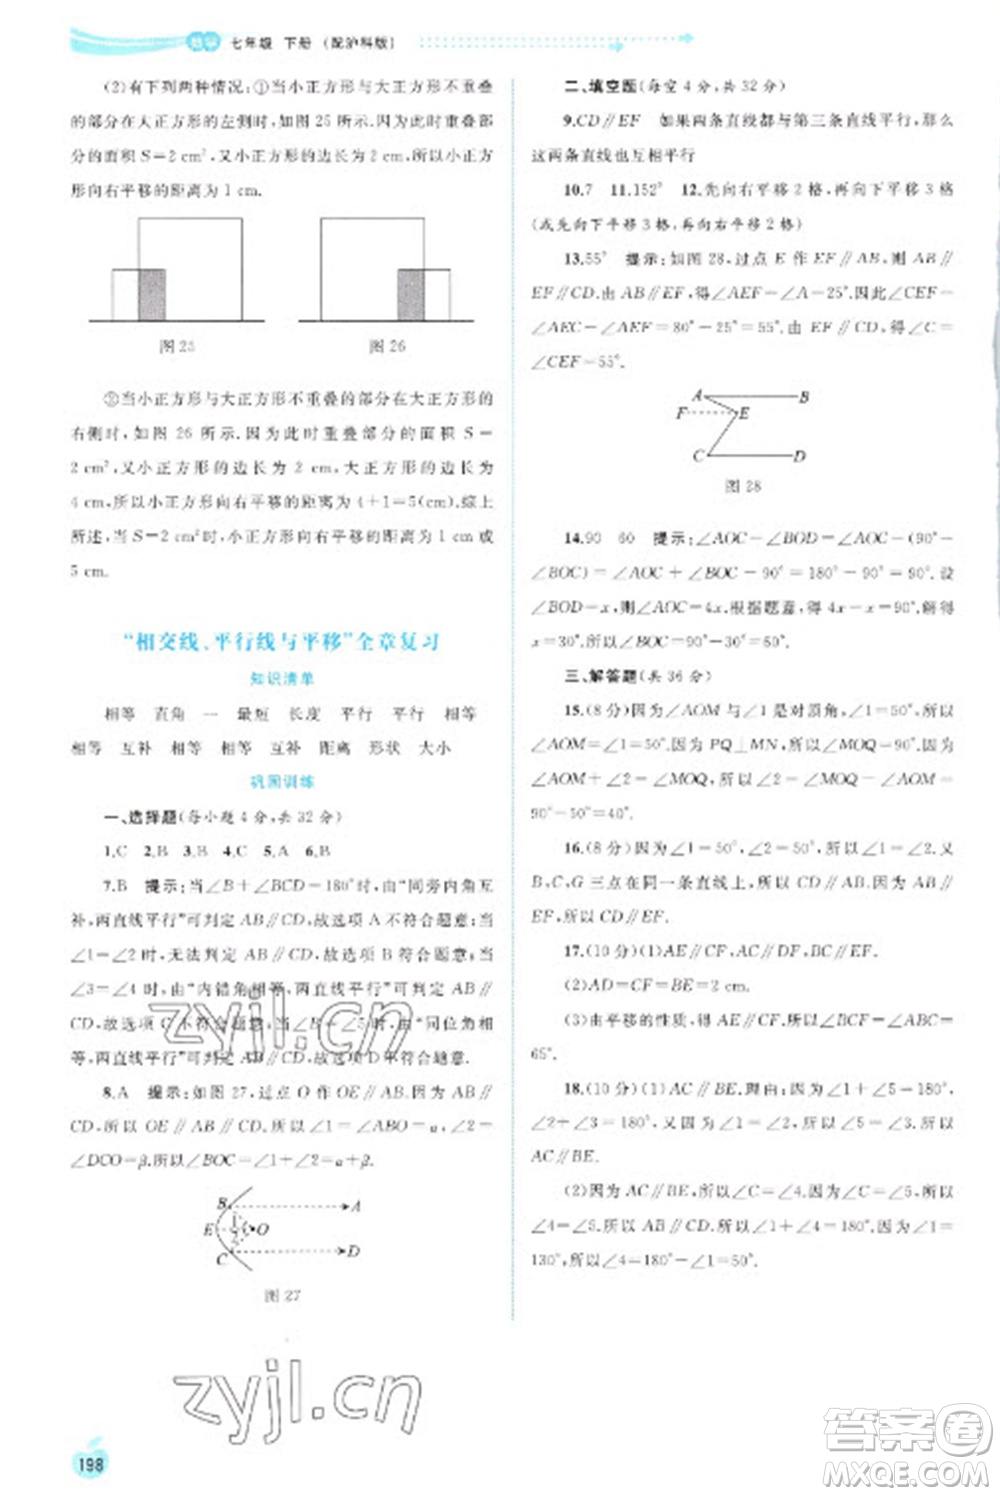 数学 七年级 下册 (配沪科版)
(2)有下列两种情况:①当小正方形与大正方形不重叠
的部分在大正方形的左侧时,如图 25 所示.因为此时重叠部
分的面积 S=2 cm²,又小正方形的边长为 2 cm,所以小正方
形向右平移的距离为 1 cm.
图 25
图 26
②当小正方形与大正方形不重叠的部分在大正方形的
右侧时,如图 26 所示.因为此时重叠部分的面积 S=
2 cm²,又小正方形的边长为 2 cm,大正方形的边长为
4 cm,所以小正方形向右平移的距离为 4+1=5(cm).综上
所述,当 S=2 cm²时,小正方形向右平移的距离为 1 cm 或
5 cm.
“相交线、平行线与平移”全章复习
知识清单
相等 直角 一 最短 长度 平行 平行 相等
相等 互补 相等 相等 互补 距离 形状 大小
巩固训练
一、选择题(每小题 4 分,共 32 分)
1.C 2.B 3.B 4.C 5.A 6.B
7.B 提示:当∠B+∠BCD=180°时,由“同旁内角互
补,两直线平行”可判定 AB∥CD,故选项 A 不符合题意;当
∠1=∠2 时,无法判定 AB∥CD,故选项 B 符合题意;当
∠3=∠4 时,由“内错角相等,两直线平行”可判定 AB∥
CD,故选项 C 不符合题意;当∠B=∠5 时,由“同位角相
等,两直线平行”可判定 AB∥CD,故选项 D 不符合题意.
8.A 提示:如图 27,过点 O 作 OE∥AB.因为 AB∥
CD,所以 OE∥AB∥CD.所以∠1=∠ABO=α,∠2=
∠DCO=β.所以∠BOC=∠1+∠2=α+β.
B A
E 1 2 O
C D
图 27
198
二、填空题(每空 4 分,共 32 分)
9.CD∥EF 如果两条直线都与第三条直线平行,那么
这两条直线也互相平行
10.7 11.152° 12.先向右平移 2 格,再向下平移 3 格
(或先向下平移 3 格,再向右平移 2 格)
13.55° 提示:如图 28,过点 E 作 EF∥AB,所以
EF∥CD.由 AB∥EF,得∠AEF=∠A=25°.因此∠CEF=
∠AEC-∠AEF=80°-25°=55°.由 EF∥CD,得∠C=
∠CEF=55°.
A B
F E
C D
图 28
14.90 60 提示:∠AOC-∠BOD=∠AOC-(90°-
∠BOC)=∠AOC+∠BOC-90°=180°-90°=90°.设
∠BOD=x,则∠AOC=4x.根据题意,得 4x-x=90°.解得
x=30°.所以∠BOC=90°-30°=60°.
三、解答题(共 36 分)
15.(8 分)因为∠AOM 与∠1 是对顶角,∠1=50°,所以
∠AOM=∠1=50°.因为 PQ⊥MN,所以∠MOQ=90°.所以
∠AOM+∠2=∠MOQ=90°.所以∠2=∠MOQ-∠AOM=
90°-50°=40°.
16.(8 分)因为∠1=50°,∠2=50°,所以∠1=∠2.又
B、C、G 三点在同一条直线上,所以∠1=∠BCD.所以
CD∥EF.
17.(10 分)(1)AE∥CF,AC∥DF,BC∥EF.
(2)AD=CF=BE=2 cm.
(3)由平移的性质,得∠DEF=∠ABC.所以∠ABC=
65°.
18.(10 分)(1)AC∥BE.理由:∠1+∠2=180°,
∠2+∠3=180°.所以∠1=∠3.因为∠1=∠4,所以∠3=∠4.所以
AC∥BE.
(2)因为 AC∥BE,所以∠C=∠4.因为∠C=∠5,所以
∠4=∠5.所以 BC∥AD.所以∠1+∠4=180°.又∠1=
130°,所以∠4=180°-∠1=50°.
zyjl.cn
zyjl.cn
答案圈
MXQE.COM